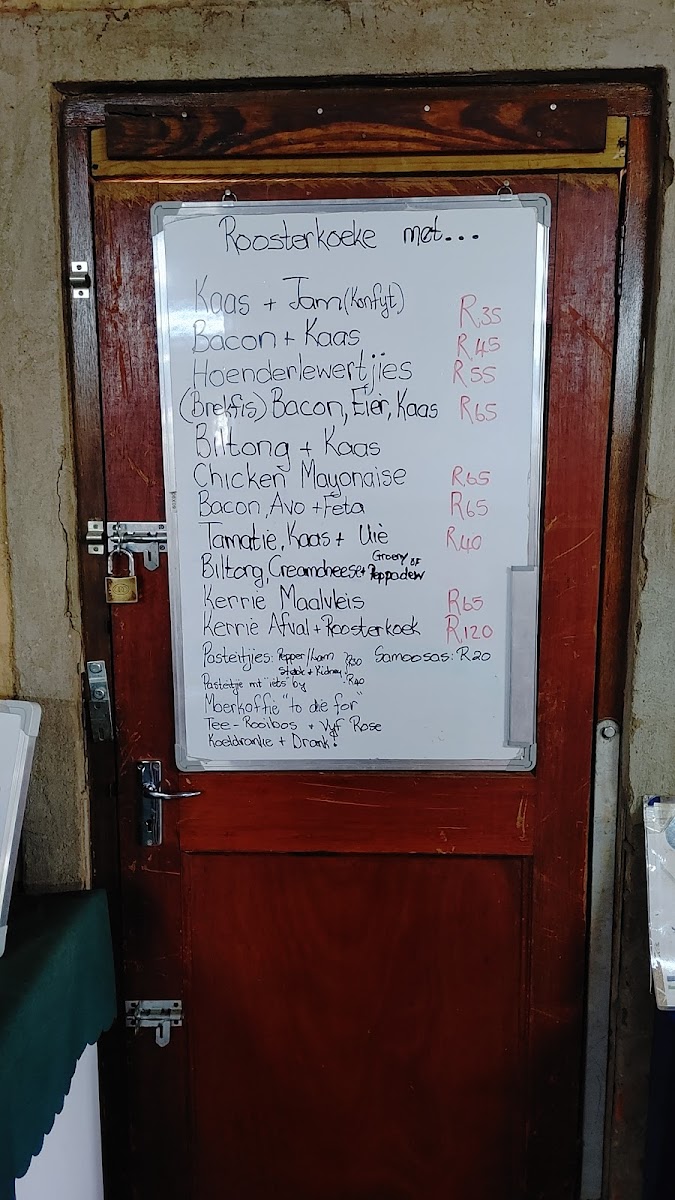 Roosterkoeke met...
Kaas + Jam (Konfyt) R35
Bacon + Kaas R45
Hoenderlewertjies R55
(Brekfis) Bacon, Eier, Kaas R65
Biltong + Kaas
Chicken Mayonaise R65
Bacon, Avo + Feta R65
Tamatie, Kaas + Uie R40
Biltong, Creamcheese + Groeny of Peppadew
Kerrie Maalvleis R65
Kerrie Afval + Roosterkoek R120
Pasteitjies: Pepper/Lam R30 Samoosas: R20
Steak + Kidney
Pasteitjie mt "iets" by :R40
Moerkoffie "to die for"
Tee - Rooibos + Vyf Rose
Koeldranke + Drank!